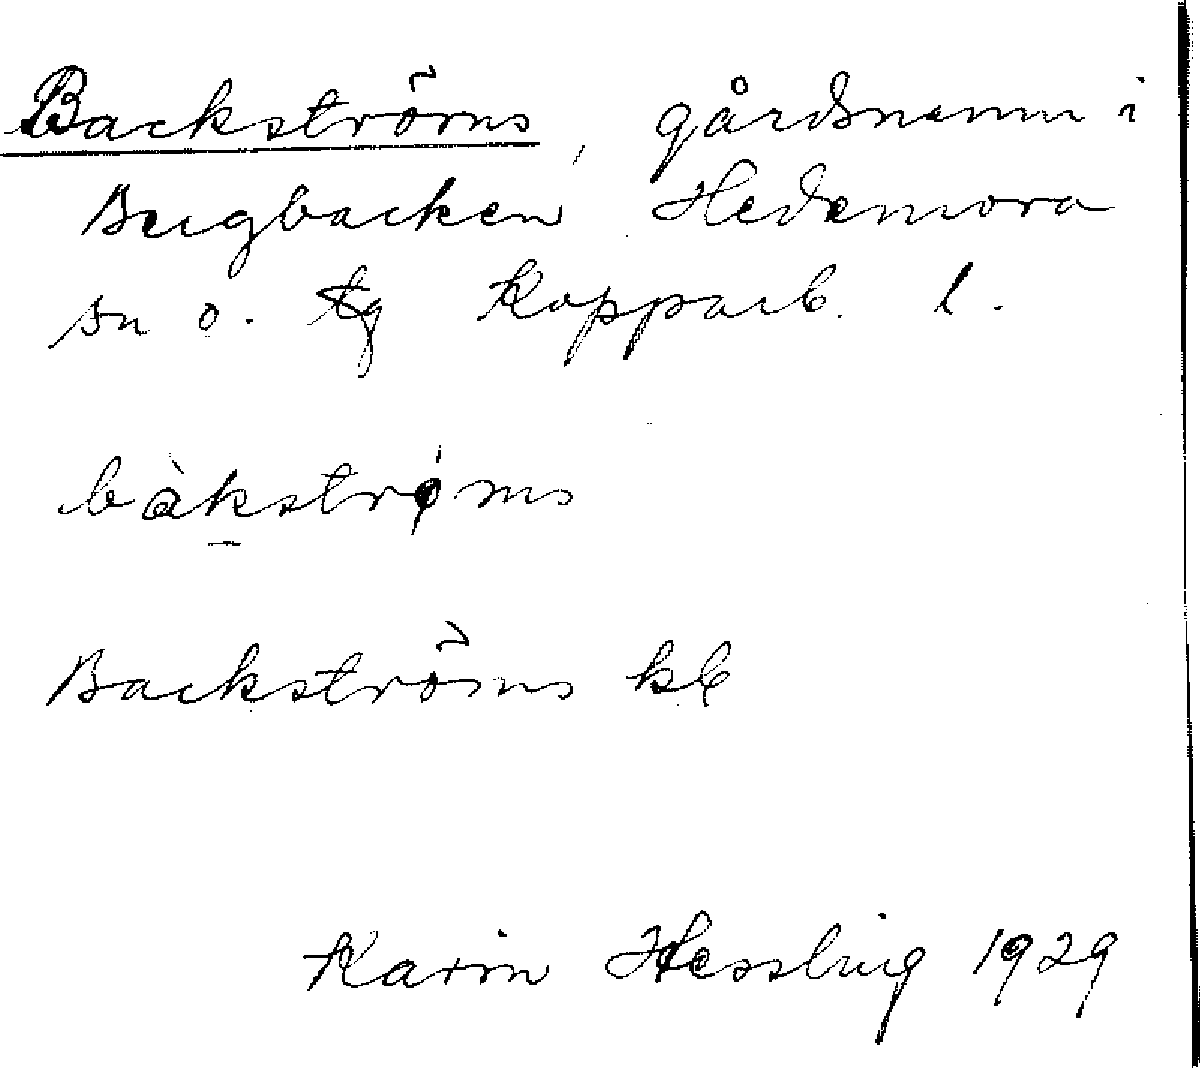 Backströms, gårdsnamn i
Bergbacken Hedemora
sn o. tg Kopparb. l.
bàkstrǿms
Backströms kb
Karin Hessling 1929